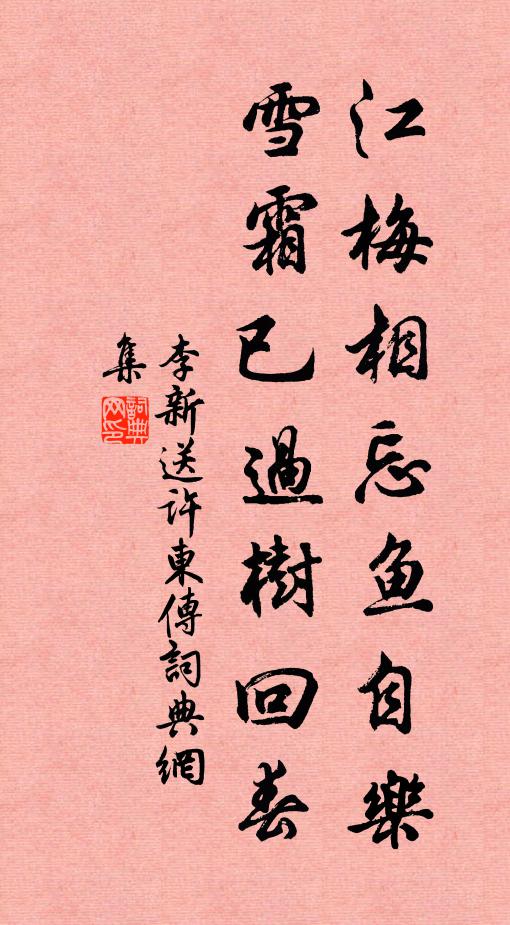 江梅相忘鱼自樂
雪霜已過樹回春
李新送许東傳詞典網
集
詞典
网印